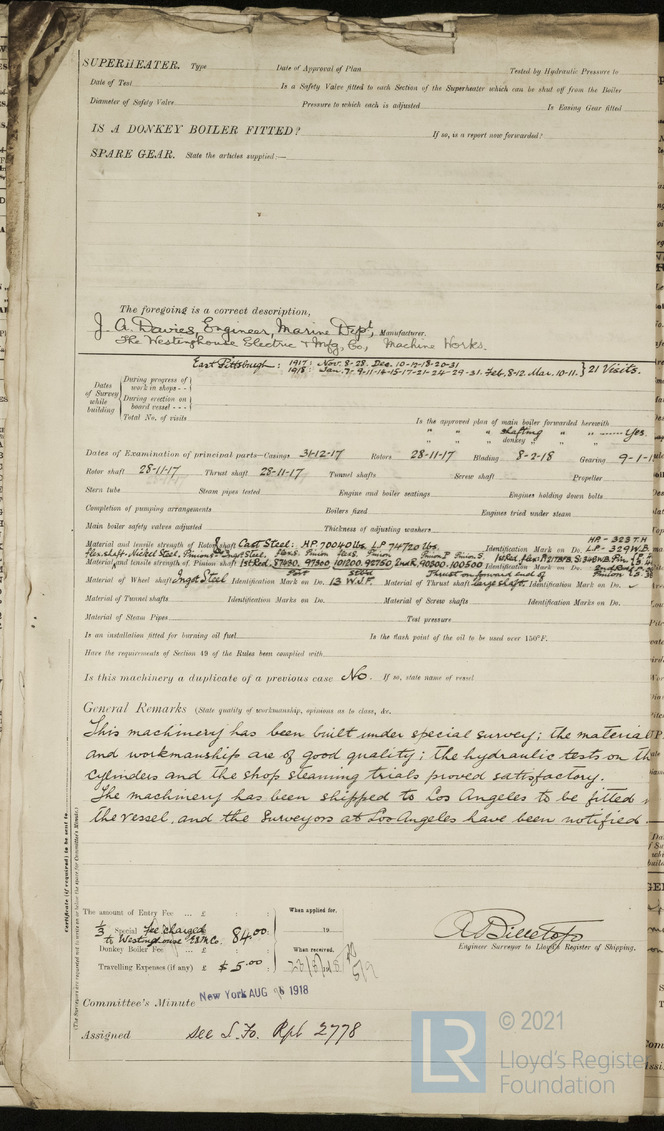 SUPERHEATER. Type Date of Approval of Plan Tested by Hydraulic Pressure to
Date of Test Is a Safety Valve fitted to each Section of the Superheater which can be shut off from the Boiler
Diameter of Safety Valve Pressure to which each is adjusted Is Easing Gear fitted
IS A DONKEY BOILER FITTED? If so, is a report now forwarded?
SPARE GEAR. State the articles supplied:—
The foregoing is a correct description,
J. A. Davies, Engineer, Marine Dept, Manufacturer.
The Westinghouse Electric & Mfg. Co, Machine Works.
East Pittsburgh: 1917: Nov. 8-28. Dec. 10-17-18-20-31
1918: Jan. 7-9-11-14-15-17-21-24-29-31. Feb. 8-12. Mar. 10-11. } 21 Visits.
Dates of Survey while building
During progress of work in shops - -
During erection on board vessel - - -
Total No. of visits
Is the approved plan of main boiler forwarded herewith
" " " shafting " " Yes.
" " " donkey " " "
Dates of Examination of principal parts—Casings 31-12-17 Rotors 28-11-17 Blading 8-2-18 Gearing 9-1-1
Rotor shaft 28-11-17 Thrust shaft 28-11-17 Tunnel shafts Screw shaft Propeller
Stern tube Steam pipes tested Engine and boiler seatings Engines holding down bolts
Completion of pumping arrangements Boilers fixed Engines tried under steam
Main boiler safety valves adjusted Thickness of adjusting washers
Material and tensile strength of Rotor shaft Cast Steel: HP. 70040 lbs. LP 74720 lbs. Identification Mark on Do. HP - 323 T.H
LP - 329 W.B.
flex. shaft - Nickel Steel. Pinions Ingot Steel. flex S. Pinion flex S. Pinion Pinion P Pinion S.
Material and tensile strength of Pinion shaft 1st Red. 87430. 97300. 101200. 92750. 2nd R. 90300. 100500 Identification Mark on Do.
Material of Wheel shaft Ingot Steel Identification Mark on Do. 13 W.J.F. Material of Thrust shaft Identification Mark on Do.
Thrust on forward end of large shaft.
Material of Tunnel shafts Identification Marks on Do. Material of Screw shafts Identification Marks on Do.
Material of Steam Pipes Test pressure
Is an installation fitted for burning oil fuel Is the flash point of the oil to be used over 150°F.
Have the requirements of Section 49 of the Rules been complied with
Is this machinery a duplicate of a previous case No. If so, state name of vessel
General Remarks (State quality of workmanship, opinions as to class, &c.
This machinery has been built under special survey; the material
and workmanship are of good quality; the hydraulic tests on th
cylinders and the shop steaming trials proved satisfactory.
The machinery has been shipped to Los Angeles to be fitted
the vessel, and the Surveyors at Los Angeles have been notified.
Certificate (if required) to be sent to
(The Surveyors are requested not to write on or below the space for Committee's Minute.)
The amount of Entry Fee ... £ : : When applied for,
1/3 Special Fee charged to Westinghouse E&M Co. 84.00 19
Donkey Boiler Fee ... £ : : When received,
Travelling Expenses (if any) £ $5.00
A D Billetop
Engineer Surveyor to Lloyd's Register of Shipping.
Committee's Minute New York AUG 1918
Assigned See S. Fo. Rpt 2778
LR © 2021
Lloyd's Register
Foundation